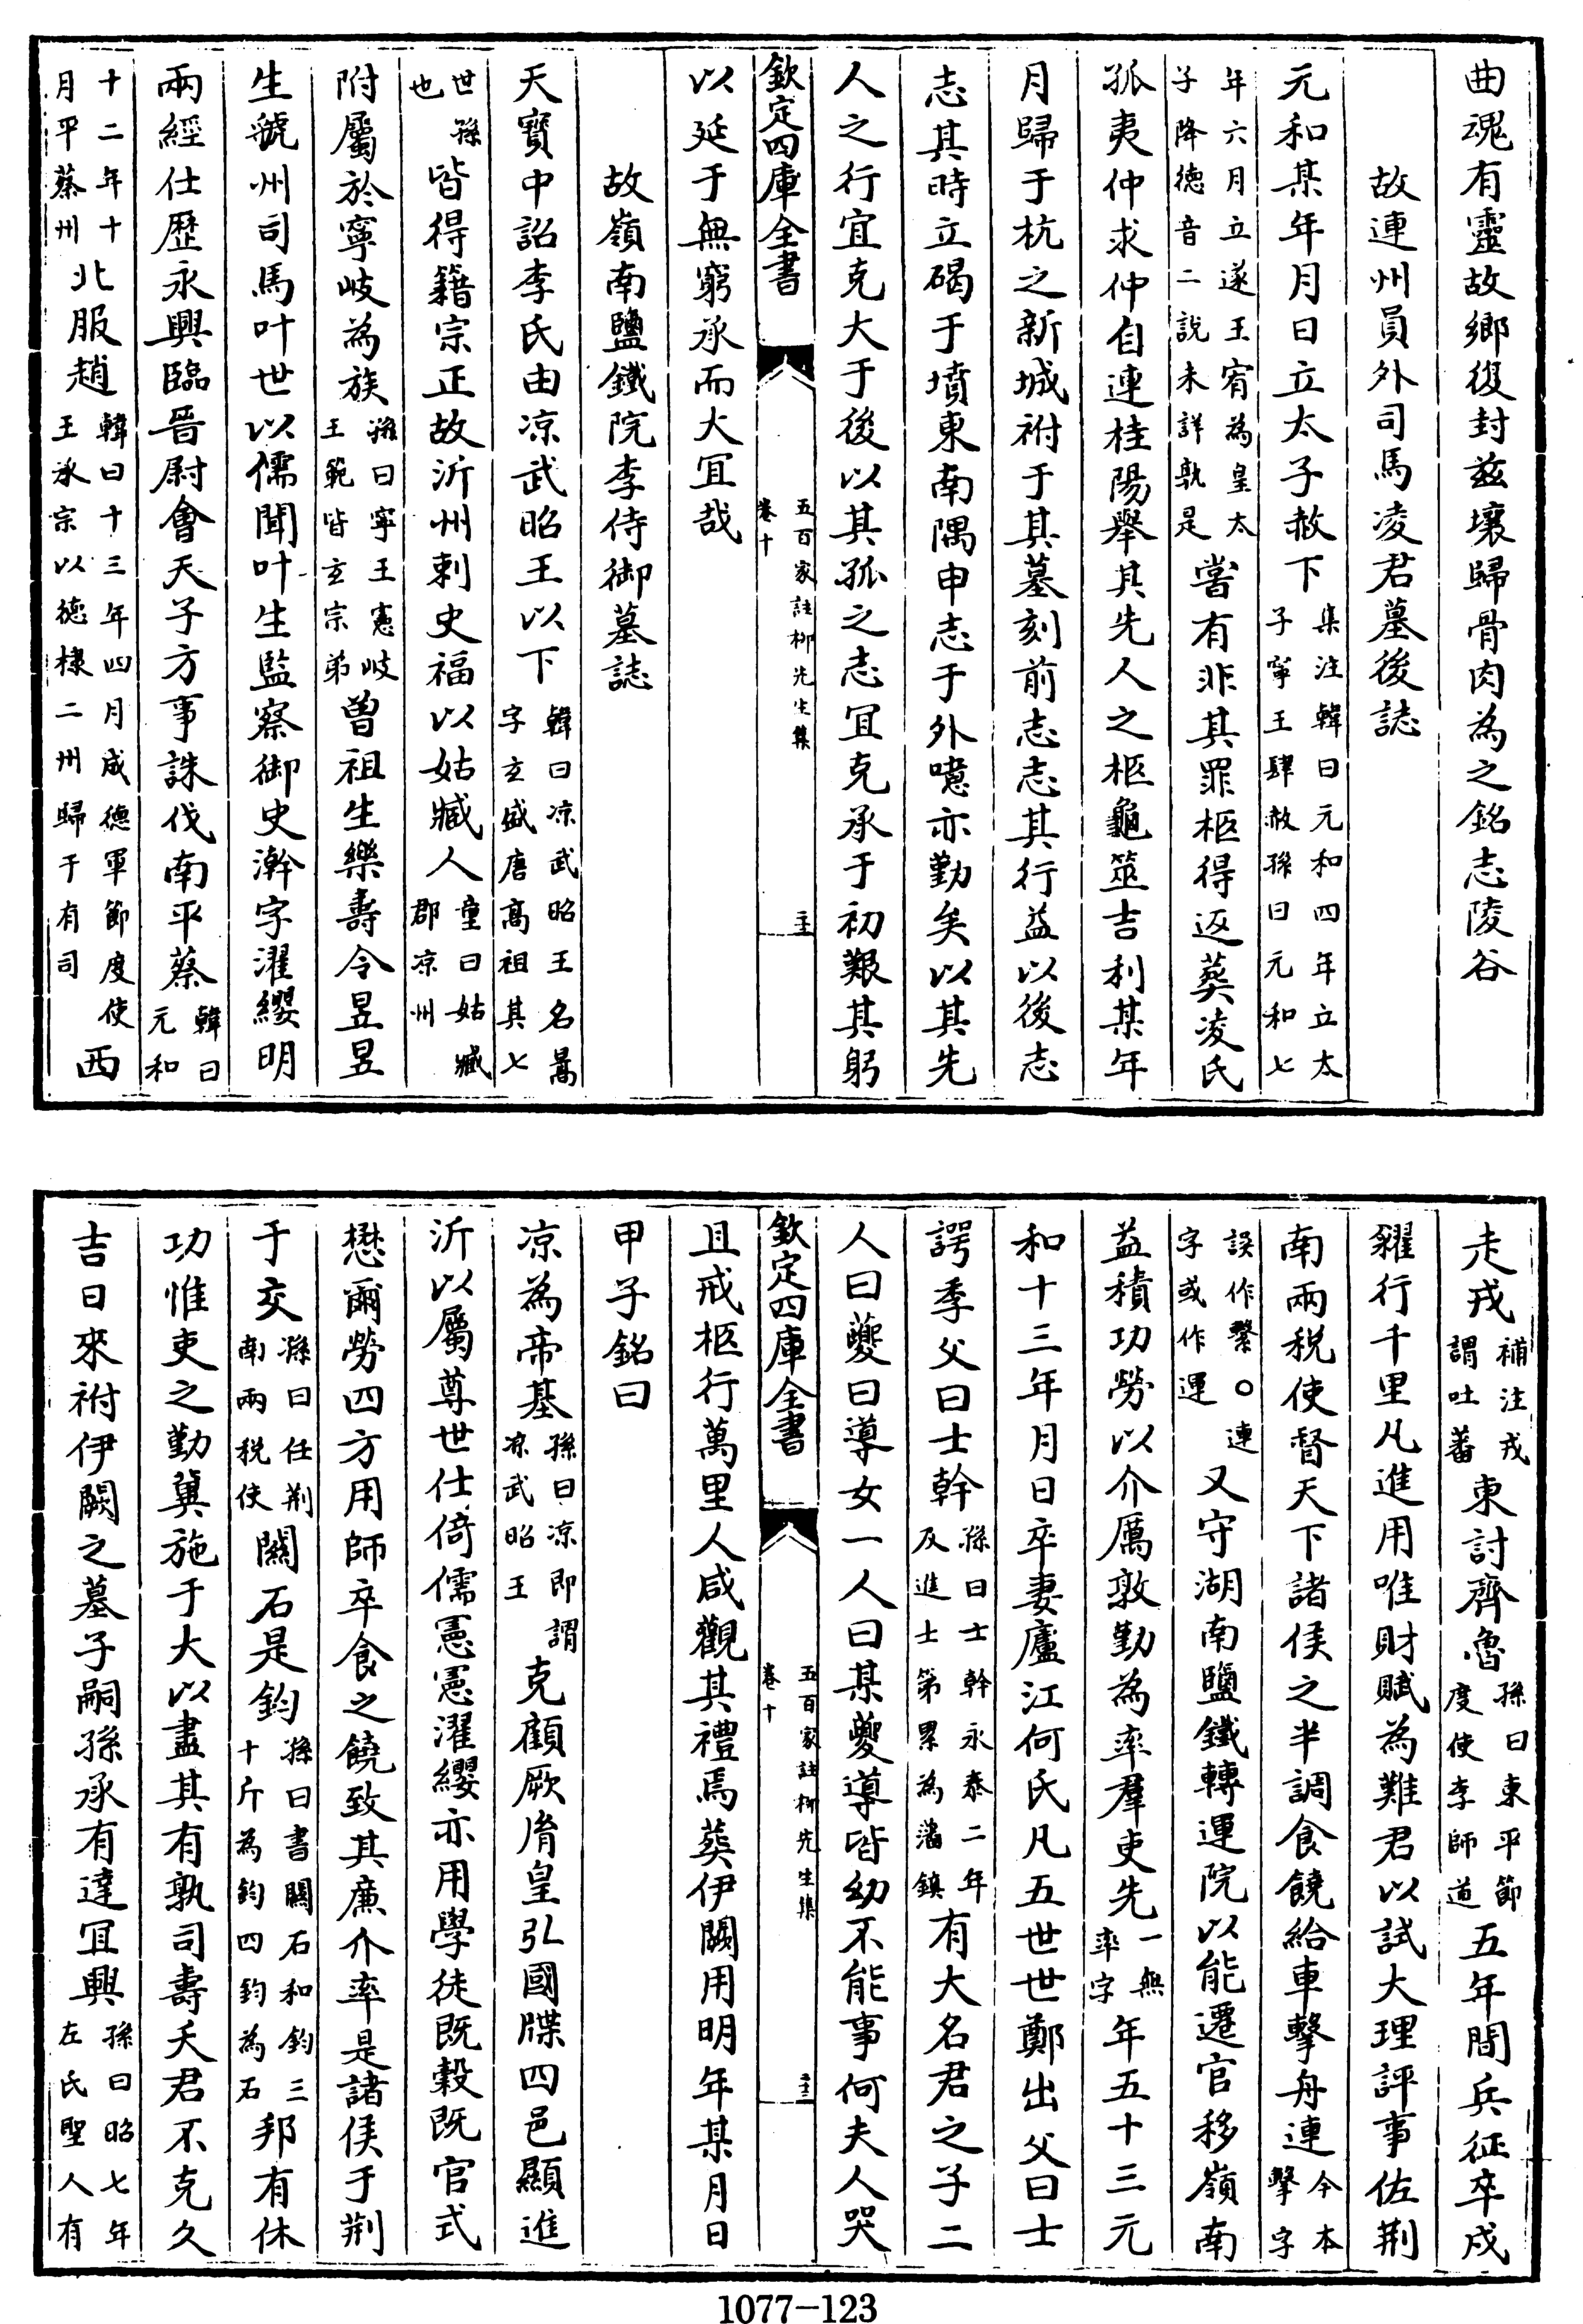 曲魂有靈故鄉復封兹壤歸骨肉為之銘志陵谷
故連州員外司馬凌君墓後誌
元和某年月日立太子赦下集注韓曰元和四年立太子寧王肆赦孫曰元和七
年六月立遂王宥為皇太子降德音二說未詳孰是嘗有非其罪柩得返葬凌氏
孤夷仲求仲自連桂陽舉其先人之柩龜筮吉利某年
月歸于杭之新城祔于其墓刻前志志其行益以後志
志其時立碣于墳東南隅申志于外噫亦勤矣以其先
人之行宜克大于後以其孤之志冝克承于初艱其躬
欽定四庫全書 五百家註柳先生集 卷十 二十二
以延于無窮承而大冝哉
故嶺南鹽鐵院李侍御墓誌
天寶中詔李氏由凉武昭王以下韓曰凉武昭王名暠字玄盛唐髙祖其七
世孫也皆得籍宗正故沂州刺史福以姑臧人童曰姑臧郡凉州
附屬於寧岐為族孫曰寧王憲岐王範皆玄宗弟曽祖生樂壽令昱昱
生虢州司馬叶世以儒聞叶生監察御史澣字濯纓明
兩經仕歷永興臨晉尉會天子方事誅伐南平蔡韓曰元和
十二年十月平蔡州北服趙韓曰十三年四月成德軍節度使王承宗以德棣二州歸于有司西
走戎補注戎謂吐蕃東討齊魯孫曰東平節度使李師道五年間兵征卒戍
糴行千里凡進用唯財賦為難君以試大理評事佐荆
南兩税使督天下諸侯之半調食饒給車擊舟連今本擊字
誤作繫○連字或作運又守湖南鹽鐵轉運院以能遷官移嶺南
益積功勞以介厲敦勤為率羣吏先一無率字年五十三元
和十三年月日卒妻廬江何氏凡五世世鄭出父曰士
諤季父曰士幹孫曰士幹永泰二年及進士第累為藩鎮有大名君之子二
人曰夔曰導女一人曰某夔導皆幼不能事何夫人哭
欽定四庫全書 五百家註柳先生集 卷十 二十三
且戒柩行萬里人咸觀其禮焉葬伊闕用明年某月日
甲子銘曰
凉為帝基孫曰凉即謂凉武昭王克顧厥胄皇弘國牒四邑顯進
沂以屬尊世仕倚儒憲憲濯纓亦用學徒既穀既官式
懋爾勞四方用師卒食之饒致其廉介率是諸侯于荆
于交孫曰任荆南兩税使關石是鈞孫曰書關石和鈞三十斤為鈞四鈞為石邦有休
功惟吏之勤冀施于大以盡其有孰司壽夭君不克久
吉日來祔伊闕之墓子嗣孫承有達冝興孫曰昭七年左氏聖人有
1077-123